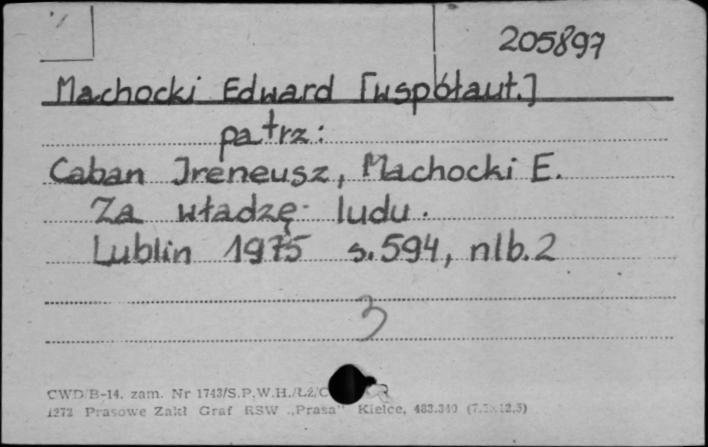 205897
Machocki Edward [współaut.]
patrz:
Caban Ireneusz, Machocki E.
Za władzę ludu.
Lublin 1975 s.594, nlb.2
3
CWD/B-14. zam. Nr 1743/S.P.W.H./ŁŻ/C
1272 Prasowe Zakł Graf RSW „Prasa" Kielce, 483.340 (7.5x12.5)